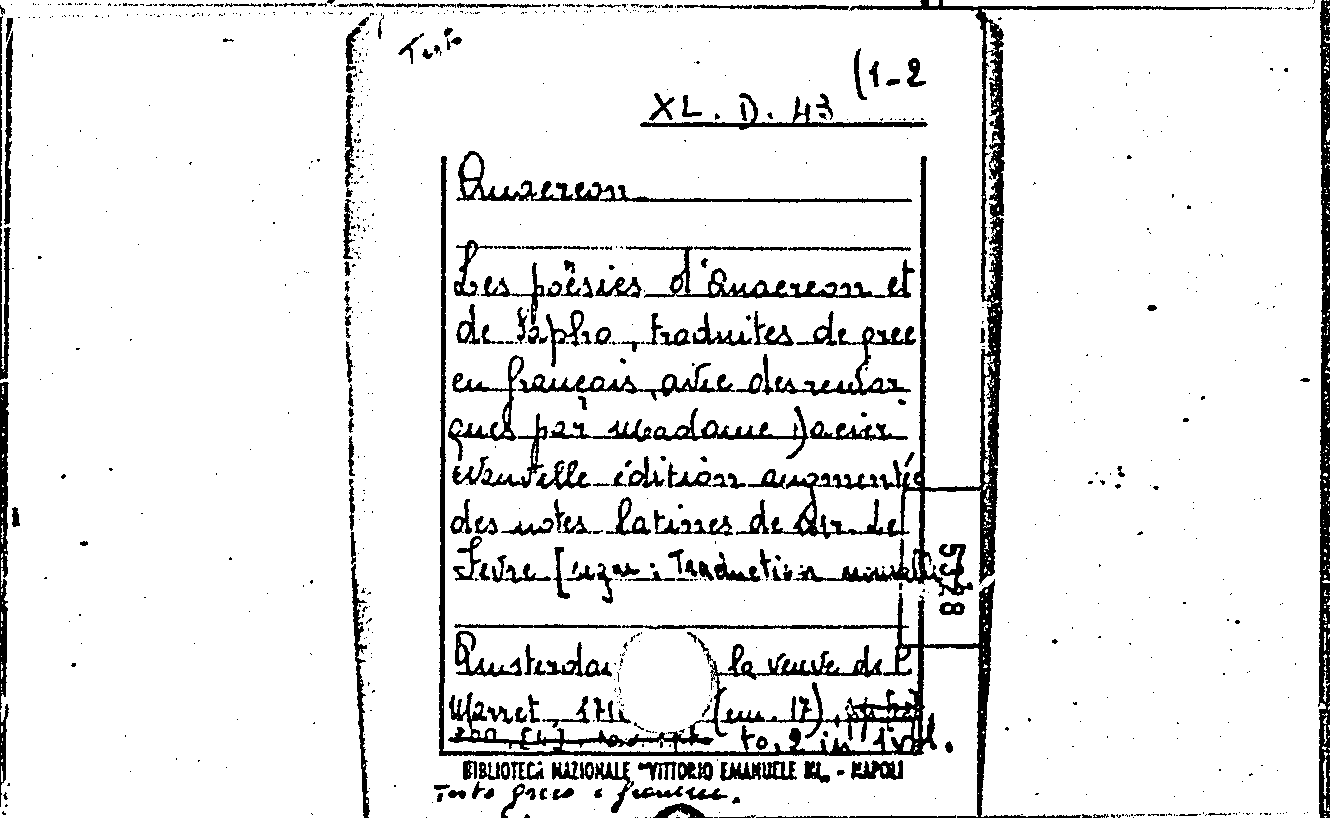 Testo
(1-2
XL. D. 43
Anacreon
Les poësies d'Anacreon et
de Sapho, traduites de grec
en français, avec des remar
ques par Madame Dacier
Nouvelle édition augmentée
des notes latines de Mr. Le
Fevre [segue: Traduction nouvelle].
5728
Amsterda la veuve de P.
Marret, 171 (cm. 17),
to. 2 in 1 vol.
BIBLIOTECA NAZIONALE "VITTORIO EMANUELE III" - NAPOLI
Testo greco e francese.